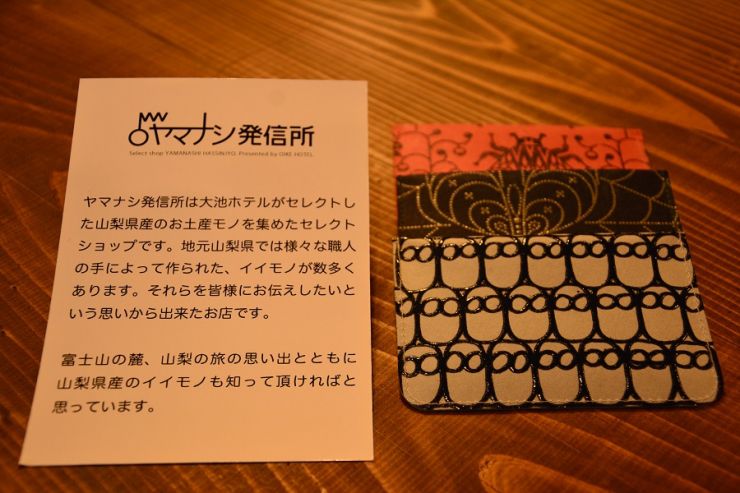 ヤマナシ発信所
Select shop YAMANASHI HASSINJYO. Presented by OIKE HOTEL
ヤマナシ発信所は大池ホテルがセレクトし
た山梨県産のお土産モノを集めたセレクト
ショップです。地元山梨県では様々な職人
の手によって作られた、イイモノが数多く
あります。それらを皆様にお伝えしたいと
いう思いから出来たお店です。
富士山の麓、山梨の旅の思い出とともに
山梨県産のイイモノも知って頂ければと
思っています。